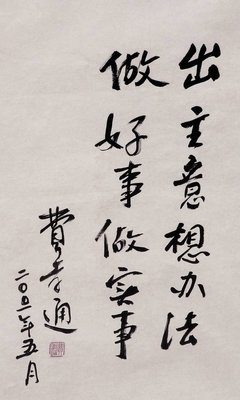 出主意想办法
做好事做实事
费孝通
二〇〇一年五月